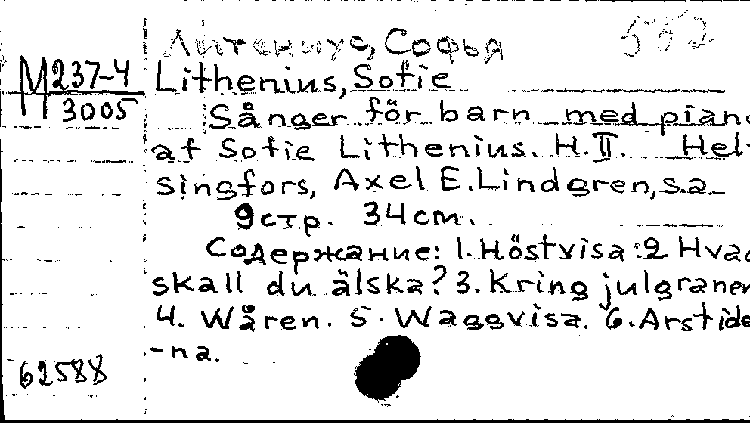 Литениус, Софья 552
М 237-4
3005
Lithenius, Sofie
Sånger för barn med piano
af Sofie Lithenius. H.II. Hel-
singfors, Axel E.Lindgren, s.a
9стр. 34см.
Содержание: 1.Höstvisa 2 Hvad
skall du älska? 3. Kring julgranen
4. Wåren. 5. Waggvisa. 6. Arstide
-na.
62588